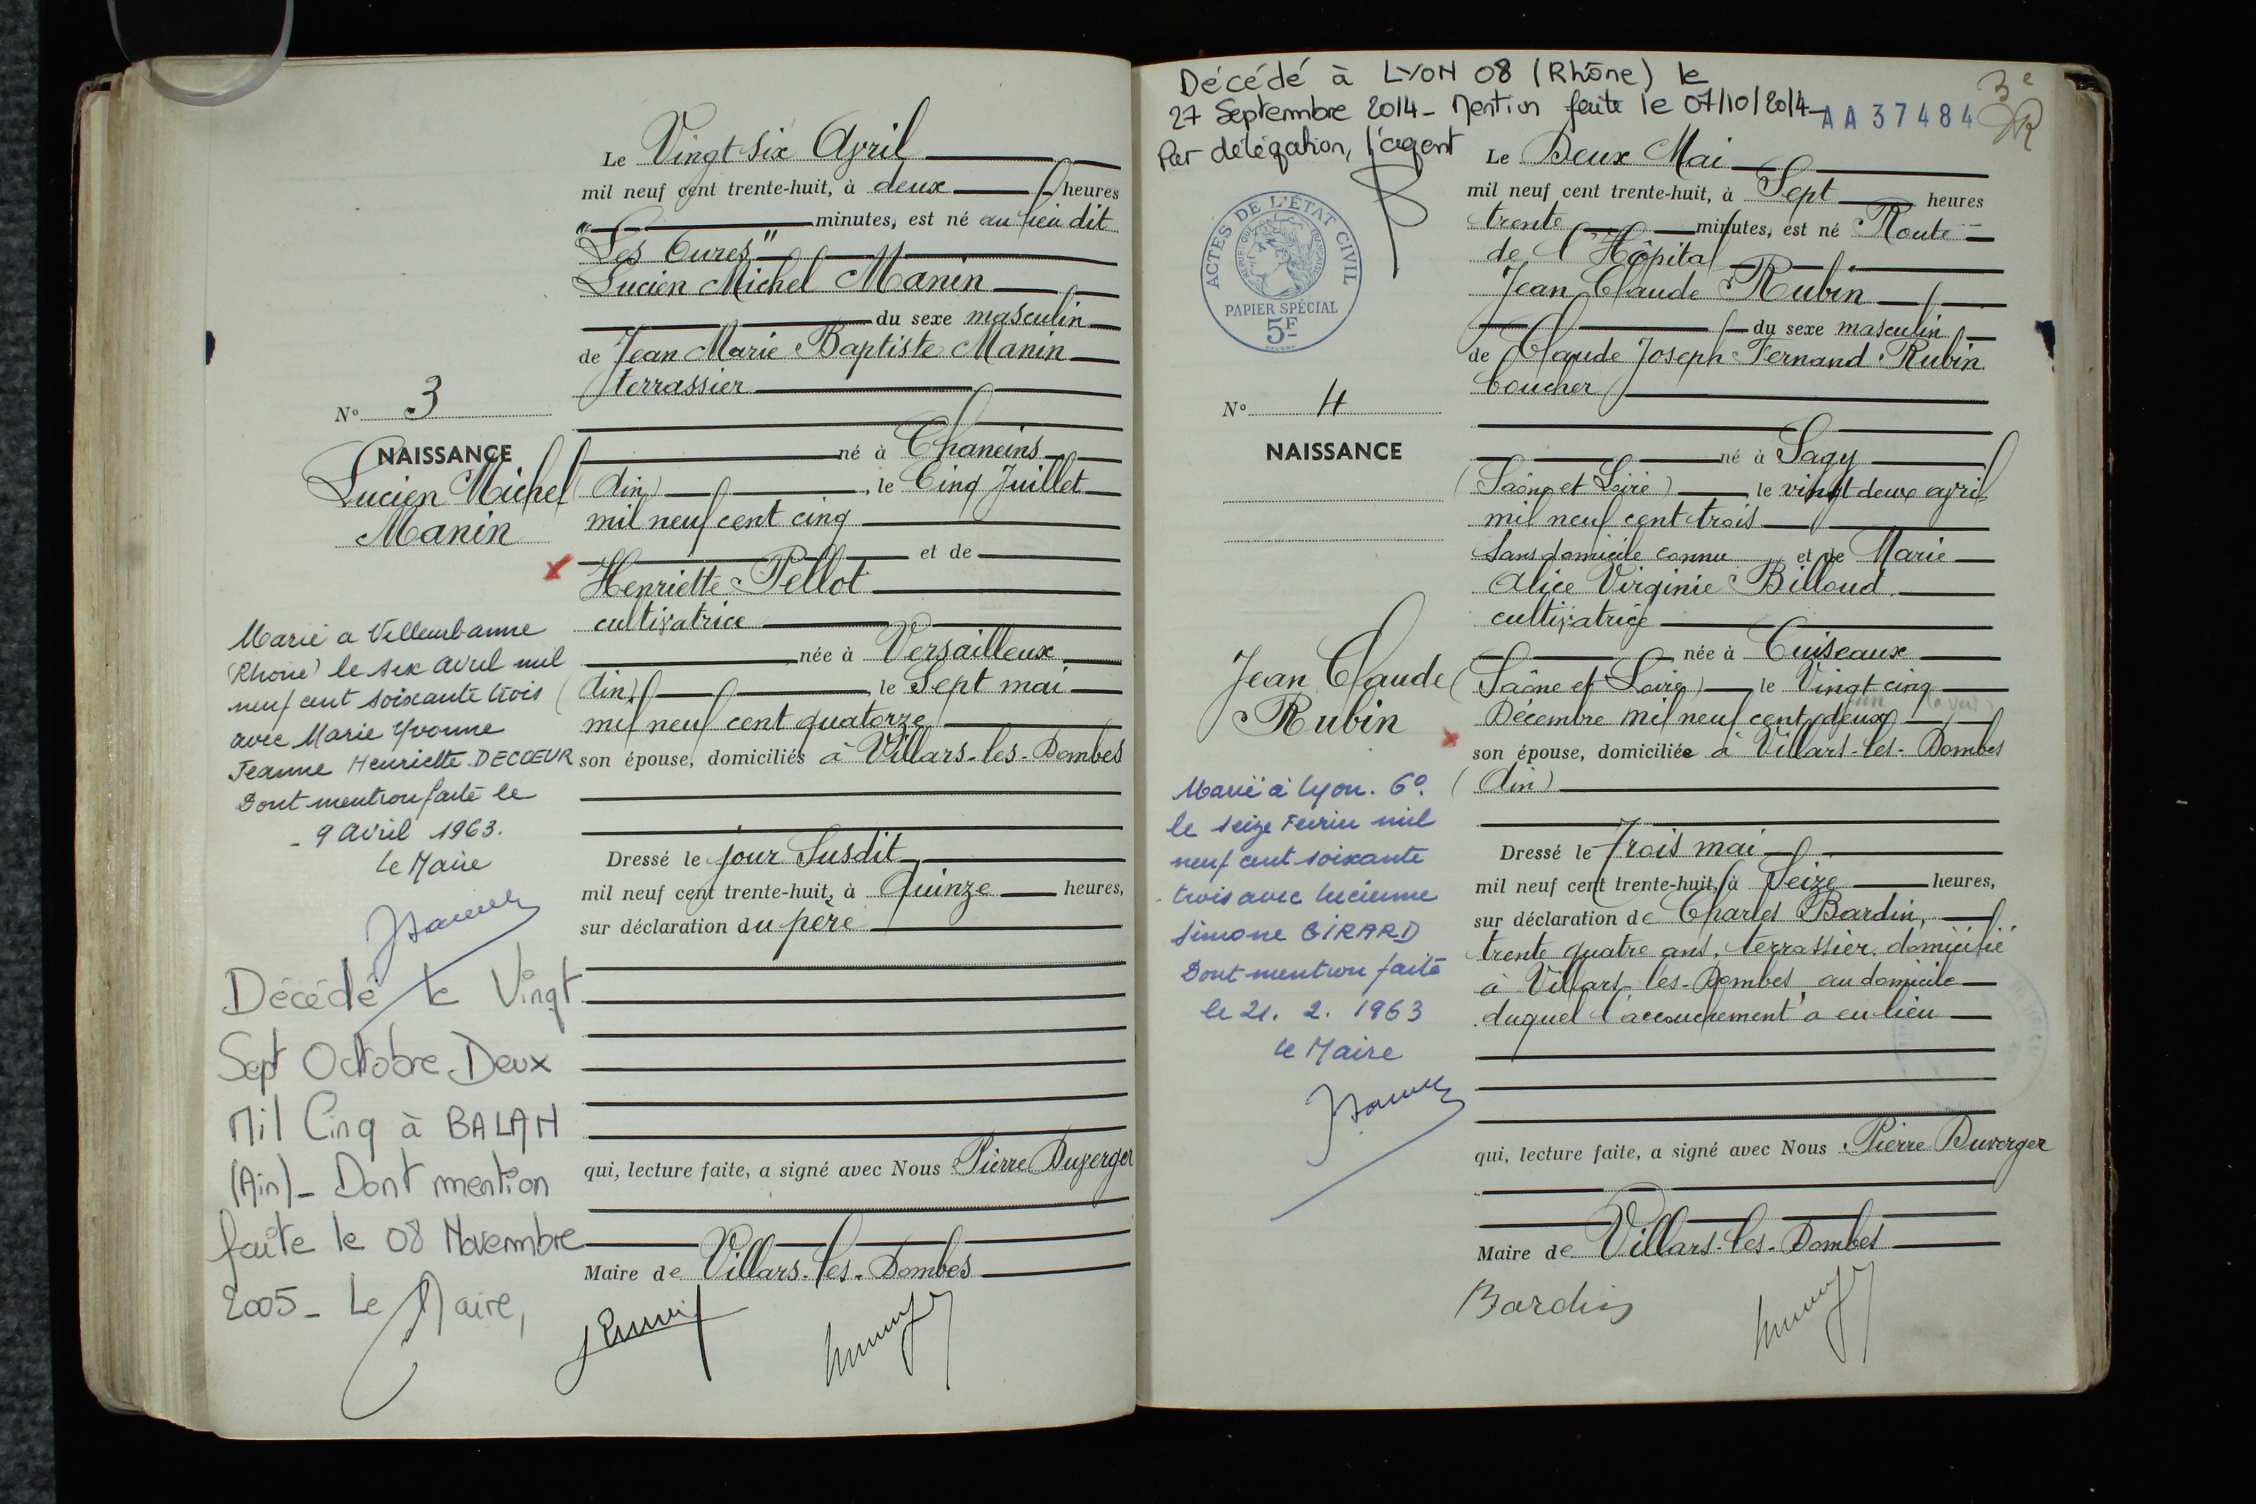 Le Vingt six Avril
mil neuf cent trente-huit, à deux heures
" minutes, est né au lieu dit
Les Cures"
Lucien Michel Manin
du sexe masculin
de Jean Marie Baptiste Manin
terrassier
N° 3
NAISSANCE
Lucien Michel
Manin
né à Chaneins
(Ain), le Cinq Juillet
mil neuf cent cinq
et de
Henriette Pellot
cultivatrice
née à Versailleux
(Ain), le Sept mai
mil neuf cent quatorze
son épouse, domiciliés à Villars-les-Dombes
Marié a Villeurbanne
(Rhone) le six Avril mil
neuf cent soixante trois
avec Marie Yvonne
Jeanne Henriette DECŒUR
Dont mention faite le
- 9 Avril 1963.
Le Maire
Dressé le jour Susdit
mil neuf cent trente-huit, à Quinze heures,
sur déclaration du père
Décédé le Vingt
Sept Octobre Deux
Mil Cinq à BALAN
(Ain)_ Dont mention
faite le 08 Novembre
2005_ Le Maire,
qui, lecture faite, a signé avec Nous Pierre Duverger
Maire de Villars-les-Dombes
Décédé à LYON 08 (Rhône) le
27 Septembre 2014_ Mention faite le 07/10/2014_
Par délégation, l'agent
AA37484
3e
Le Deux Mai
mil neuf cent trente-huit, à Sept heures
trente minutes, est né Route
de l'Hôpital
Jean Claude Rubin
du sexe masculin
de Claude Joseph Fernand Rubin
boucher
ACTES DE L'ÉTAT CIVIL
RÉPUBLIQUE FRANÇAISE
PAPIER SPÉCIAL
5F
N° 4
NAISSANCE
né à Sagy
(Saône et Loire), le vingt deux avril
mil neuf cent trois
sans domicile connu et de Marie
Alice Virginie Billoud
cultivatrice
née à Cuiseaux
(Saône et Loire), le Vingt cinq
Décembre mil neuf cent deux
son épouse, domiciliée à Villars-les-Dombes
(Ain)
Jean Claude
Rubin
Marié à Lyon. 6°.
le seize Fevrier mil
neuf cent soixante
trois avec Lucienne
Simone GIRARD
Dont mention faite
le 21. 2. 1963
Le Maire
Dressé le Trois mai
mil neuf cent trente-huit, à Seize heures,
sur déclaration de Charles Bardin,
trente quatre ans, terrassier, domicilié
à Villars-les-Dombes au domicile
duquel l'accouchement a eu lieu
qui, lecture faite, a signé avec Nous Pierre Duverger
Maire de Villars-les-Dombes
Bardin